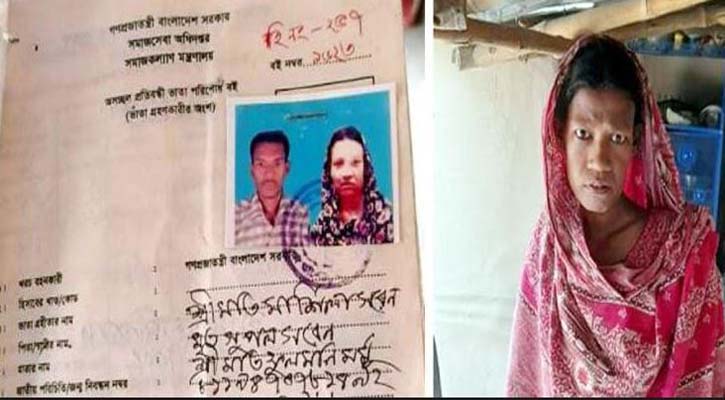 গণপ্রজাতন্ত্রী বাংলাদেশ সরকার
সমাজসেবা অধিদপ্তর
সমাজকল্যাণ মন্ত্রণালয়
বই নম্বর
অসচ্ছল প্রতিবন্ধী ভাতা পরিশোধ বই
(ভাতা গ্রহণকারীর অংশ)
খরচ বহনকারী : গণপ্রজাতন্ত্রী বাংলাদেশ সরকার
হিসাবের খাত/কোড :
ভাতা গ্রহীতার নাম : শ্রীমতি সরেন
পিতা/স্বামীর নাম : মৃত সুপল সরেন
মাতার নাম : শ্রী মতি ফুলমনি মর্মু
জাতীয় পরিচিতি/জন্ম নিবন্ধন নম্বর